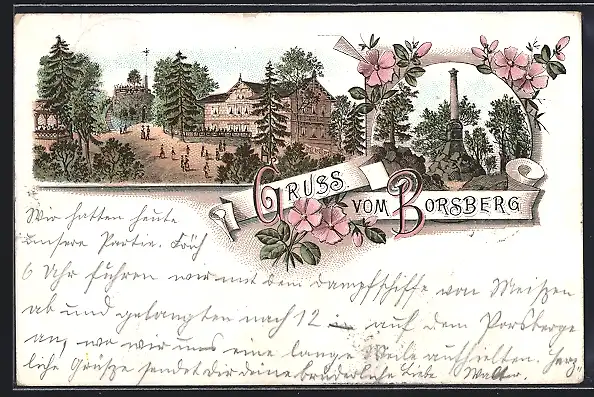 GRUSS
VOM BORSBERG
Wir hatten heute
unsere Partie. Früh
6 Uhr fuhren wir mit dem Dampfschiffe von Meißen
ab und gelangten nach 12 auf dem Porsberge
an, wo wir uns eine lange Weile aufhielten. Herz-
liche Grüße sendet Dir deine brüderliche Liebe Walter.